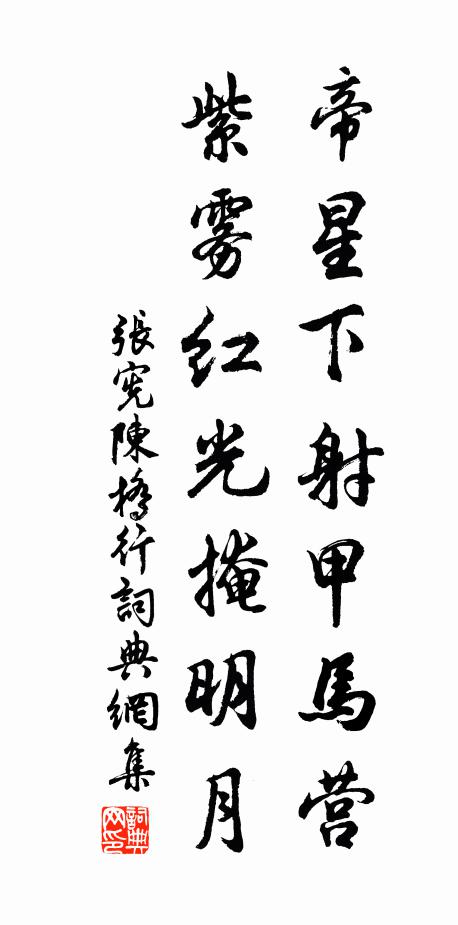 帝星下射甲馬营
紫雾红光掩明月
張宪陳橋行詞典網集
詞典网印